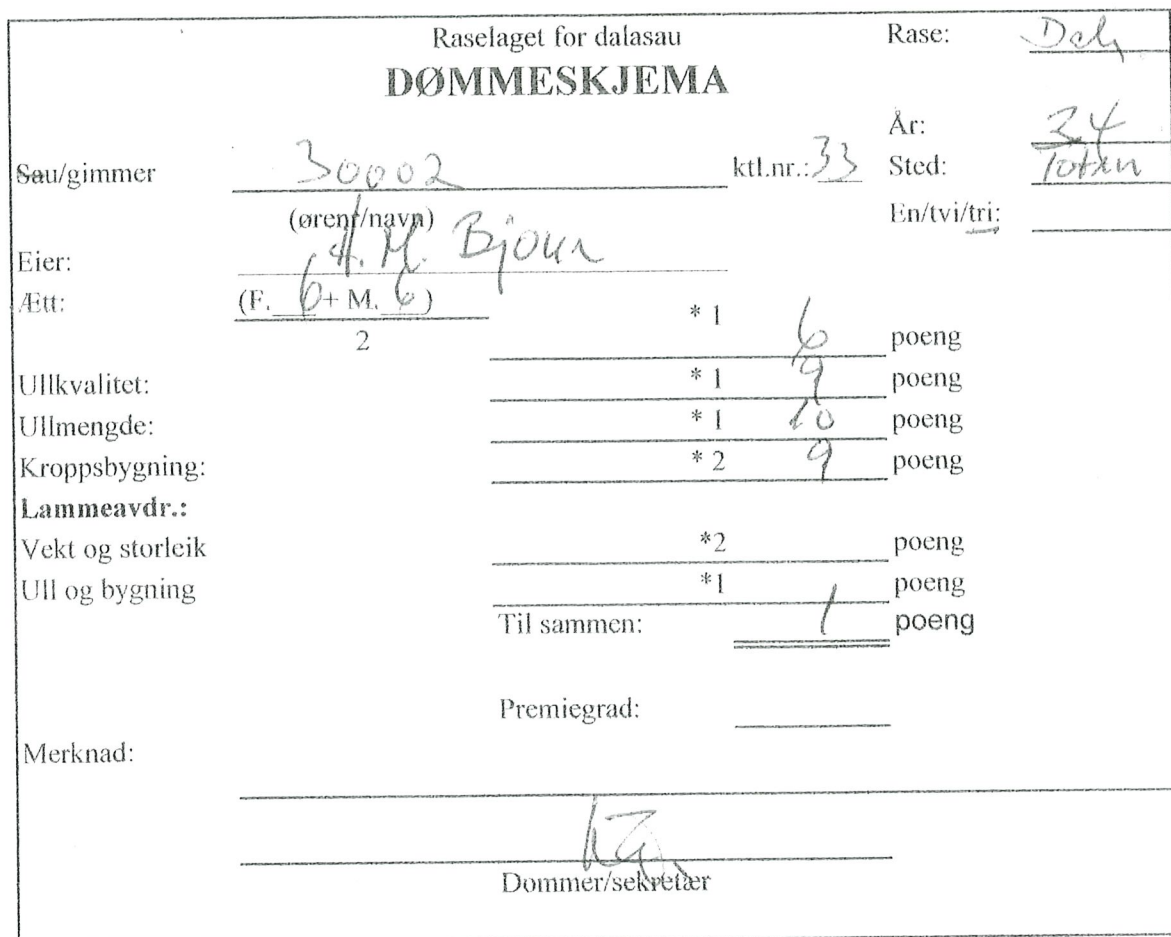 Raselaget for dalasau Rase: Dala
DØMMESKJEMA
År: 24
Sau/gimmer 30002 ktl.nr.: 33 Sted: Toten
(ørenr/navn) En/tvi/tri:
Eier: A. M. Bjour
Ætt: (F. 6 + M. 6)
2 * 1 6 poeng
Ullkvalitet: * 1 9 poeng
Ullmengde: * 1 10 poeng
Kroppsbygning: * 2 9 poeng
Lammeavdr.:
Vekt og storleik *2 poeng
Ull og bygning *1 poeng
Til sammen: 1 poeng
Premiegrad:
Merknad:
Dommer/sekretær